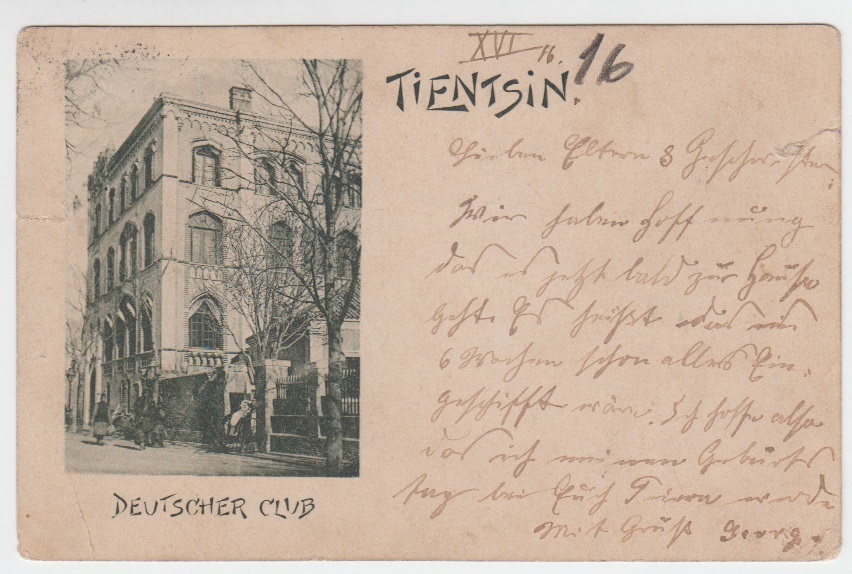 XVI 16. 16
TIENTSIN.
Lieben Eltern & Geschwister.
Wir haben Hoffnung
das es jetzt bald zur Hause
geht. Es heißt das in
6 Wochen schon alles Ein-
geschifft wäre. Ich hoffe also
das ich meinen Geburts
tag bei Euch feiern werde
Mit Gruß Georg.
DEUTSCHER CLUB